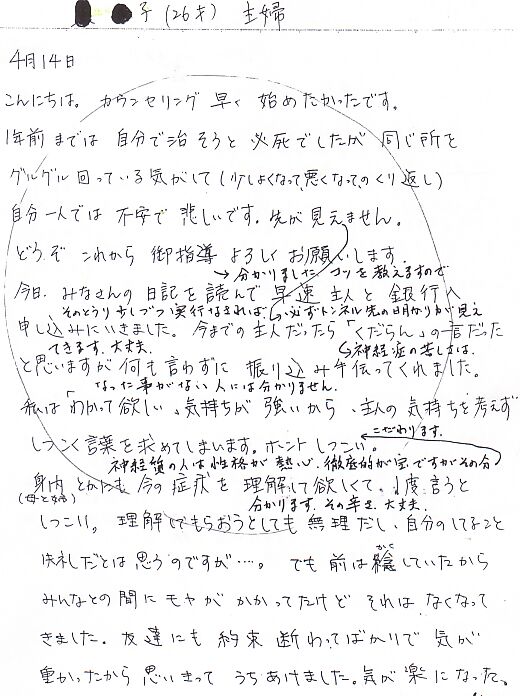 子(26才) 主婦
4月14日
こんにちは。カウンセリング 早く 始めたかったです。
1年前 までは 自分で治そうと 必死でしたが 同じ所を
グルグル 回っている 気がして(少しよくなって、悪くなってのくり返し)
自分一人では 不安で 悲しいです。先が見えません。
どうぞ これから 御指導 よろしく お願いします。
→分かりました コツを教えますので
今日、みなさんの 日記を 読んで 早速 主人と 銀行へ
そのとうり少しづつ実行なされば、必ずトンネル先の明かりが見え
申し込みにいきました。今までの主人だったら「くだらん」の一言だった
できます。大丈夫。 神経症の苦しみは、
と思いますが 何も言わずに 振り込み手伝ってくれました。
なった事がない人には分かりません。
私は「わかって欲しい」気持ちが 強いから、主人の 気持ちを考えず
こだわります。
しつこく言葉を求めてしまいます。ホントしつこい。
神経質の人は性格が熱心、徹底的が宝ですがその分
身内 とかにも 今の症状を 理解して欲しくて、1度言うと
(母と姉) 分かります。その辛さ、大丈夫。
しつこい。理解してもらおうとしても 無理だし、自分のしてること
失礼だとは 思うのですが…。でも 前は 隠していたから
かく
みんなとの 間に モヤが かかってたけど それは なくなって
きました。友達にも 約束 断わってばかりで 気が
重かったから 思いきって うちあけました。気が 楽になった。